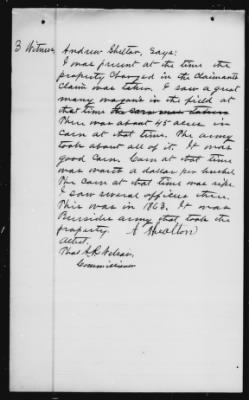 3 Witness, Andrew Shelton, Says:
I was present at the time the
property charged in the claimants
claim was taken. I saw a great
many wagons in the field at
that time the corn was taken
There was about 45 acres in
corn at that time. The army
took about all of it. It was
good corn. Corn at that time
was worth a dollar per bushel.
The corn at that time was ripe.
I saw several officers there.
This was in 1863. It was
Burnside army that took the
property. A Shelton
Attest.
Commissioner